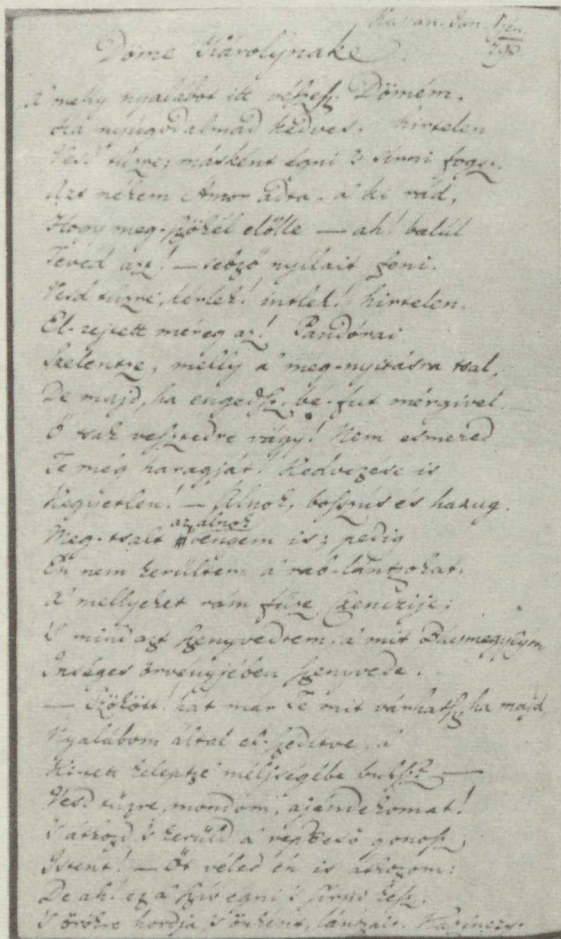 Döme Károlynake
790
A' melly nyalábot itt vészesz, Dömém,
Ha nyúgodalmad kedves, hirtelen
Vesd tűzre; másként égni 's sírni fogsz.
Azt nékem Ámor adta, a' ki rád,
Hogy meg-szökél előlle — ah! balúl
Teved azt! — sebző nyilait feni.
Vesd tűzre, kérlek! intlek! hirtelen.
El-rejtett méreg az! Pandórai
Szelentze, melly a' meg-nyitásra tsal,
De majd, ha engedsz, be-fut mérgivel.
Ő tsak vesztedre vágy! Nem esmered
Te még haragját! Kedvezése is
Kegyetlen! — Álnok, bosszús és hazug.
az álnok
Meg-tsalt engem is; pedig
Én nem kerűltem a' rab-lántzokat,
A' mellyeket rám fűze
'S mind azt szenyvedtem, a' mit
Inséges örvényjében szenyvede.
— Szökött! hát már Te mit várhatsz, ha majd
Nyalábom által el-szédítve, a'
mélységébe buksz? —
Vesd tűzre, mondom, ajándékomat!
'S átkozd 's kerűld a' repdeső gonosz
Istent! — Őt véled én is átkozom:
De ah! ez a' szív égni 's sírni kész,
'S örökre hordja 's önként, lántzait. Kazinczy.